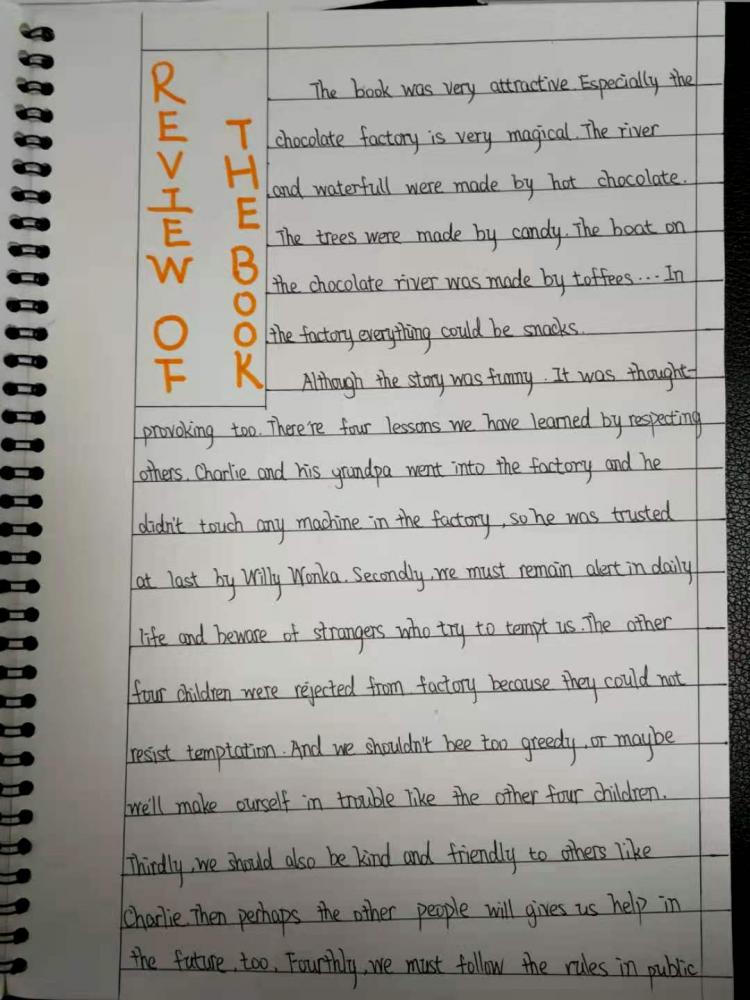 REVIEW OF
THE BOOK
The book was very attractive. Especially the
chocolate factory is very magical. The river
and waterfull were made by hot chocolate.
The trees were made by candy. The boat on
the chocolate river was made by toffees... In
the factory everything could be snacks.
Although the story was funny. It was thought-
provoking too. There're four lessons we have learned by respecting
others. Charlie and his grandpa went into the factory and he
didn't touch any machine in the factory, so he was trusted
at last by Willy Wonka. Secondly, we must remain alert in daily
life and beware of strangers who try to tempt us. The other
four children were rejected from factory because they could not
resist temptation. And we shouldn't bee too greedy, or maybe
we'll make ourself in trouble like the other four children.
Thirdly, we should also be kind and friendly to others like
Charlie. Then perhaps the other people will gives us help in
the future, too. Fourthly, we must follow the rules in public